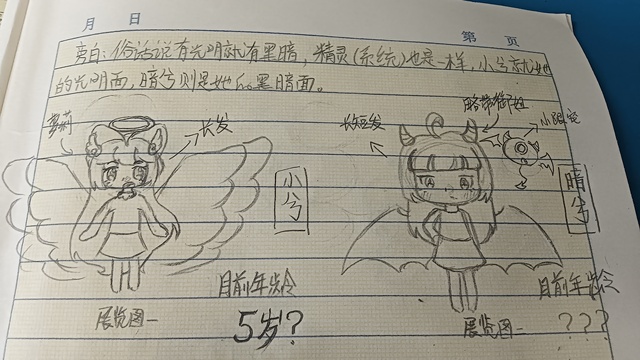 月 日
第 页
旁白：俗话说有光明就有黑暗，精灵(系统)也是一样，小兮就是她
的光明面，暗兮则是她的黑暗面。
萝莉
长发
小兮
目前年龄
5岁？
展览图一
长短发
略带御姐
小跟宠
暗兮
目前年龄
？？？
展览图二